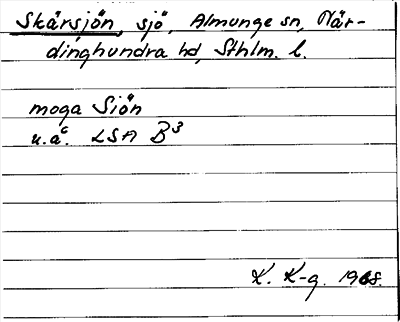 Skärsjön, sjö, Almunge sn, När-
dinghundra hd, Sthlm. l.
moga Siön
u.å. LSA B3
K. K-g. 1968.